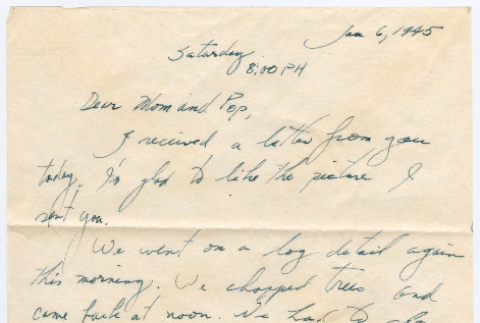 Jan 6, 1945
Saturday
8:00 PM
Dear Mom and Pop,
I received a letter from you
today. I'm glad to like the picture I
sent you.
We went on a log detail again
this morning. We chopped trees and
came back at noon. We had to